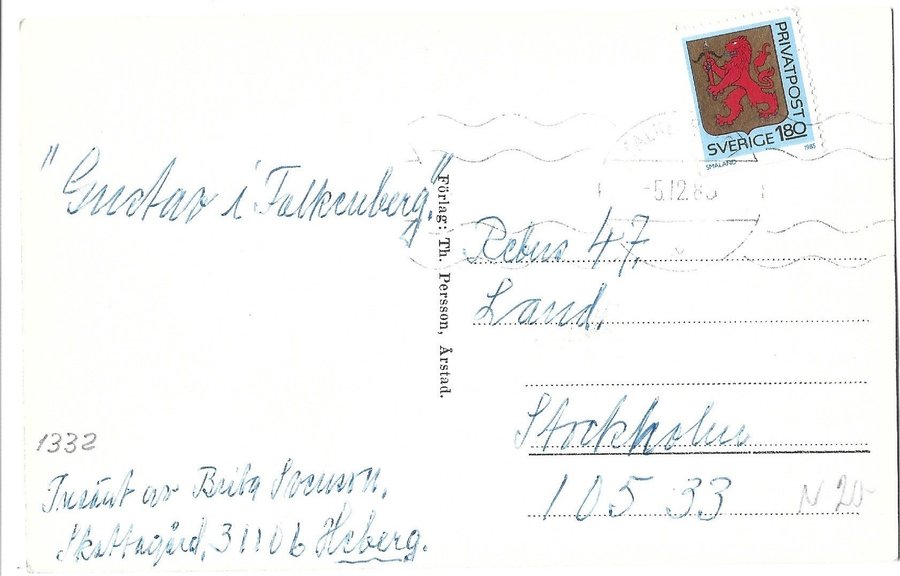 PRIVATPOST
SVERIGE 180
SMÅLAND 1985
-5.12.85
"Gustav i Falkenberg."
Förlag: Th. Persson, Årstad.
Rebus 47,
Land,
Stockholm
105 33
N 20
1332
Insänt av Brita Svenson,
Skattagård, 31106 Heberg.